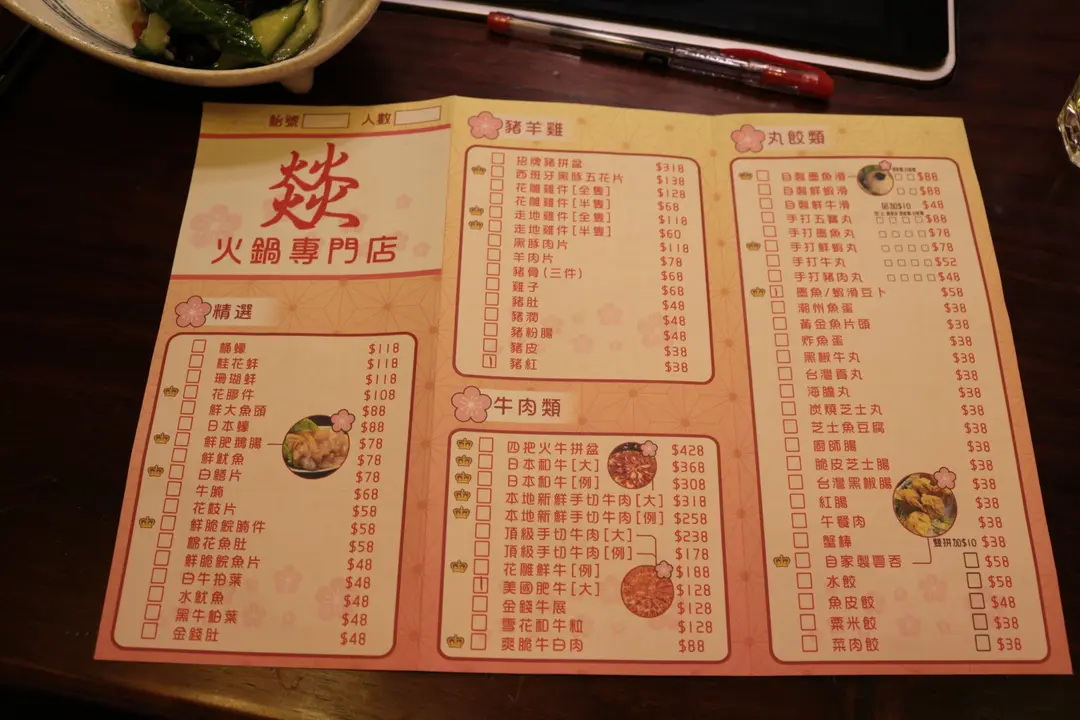 枱號 人數
燚
火鍋專門店
精選
桶蠔 $118
桂花蚌 $118
珊瑚蚌 $118
花膠件 $108
鮮大魚頭 $88
日本蠔 $88
鮮肥鵝腸 $78
鮮魷魚 $78
白鱔片 $78
牛脷 $68
花枝片 $58
鮮脆鯇腩件 $58
棉花魚肚 $58
鮮脆鯇魚片 $48
白牛柏葉 $48
水魷魚 $48
黑牛柏葉 $48
金錢肚 $48
豬羊雞
招牌豬拼盆 $318
西班牙黑豚五花片 $138
花雕雞件[全隻] $128
花雕雞件[半隻] $68
走地雞件[全隻] $118
走地雞件[半隻] $60
黑豚肉片 $118
羊肉片 $78
豬骨(三件) $68
雞子 $68
豬肚 $48
豬潤 $48
豬粉腸 $48
豬皮 $38
1 豬紅 $38
牛肉類
四把火牛拼盆 $428
日本和牛[大] $368
日本和牛[例] $308
本地新鮮手切牛肉[大] $318
本地新鮮手切牛肉[例] $258
頂級手切牛肉[大] $238
頂級手切牛肉[例] $178
花雕鮮牛[例] $188
1 美國肥牛[大] $128
金錢牛展 $128
雪花和牛粒 $128
爽脆牛白肉 $88
丸餃類
自製墨魚滑 $88
自製鮮蝦滑 $88
自製鮮牛滑 $48
加$10
手打五寶丸 $88
手打墨魚丸 $78
手打鮮蝦丸 $78
手打牛丸 $52
手打豬肉丸 $48
1 墨魚/蝦滑豆卜 $58
潮州魚蛋 $38
黃金魚片頭 $38
炸魚蛋 $38
黑椒牛丸 $38
台灣貢丸 $38
海膽丸 $38
炭燒芝士丸 $38
芝士魚豆腐 $38
廚師腸 $38
脆皮芝士腸 $38
台灣黑椒腸 $38
紅腸 $38
午餐肉 $38
蟹棒 $38
雙拼加$10
自家製雲吞 $58
水餃 $58
魚皮餃 $48
粟米餃 $38
菜肉餃 $38